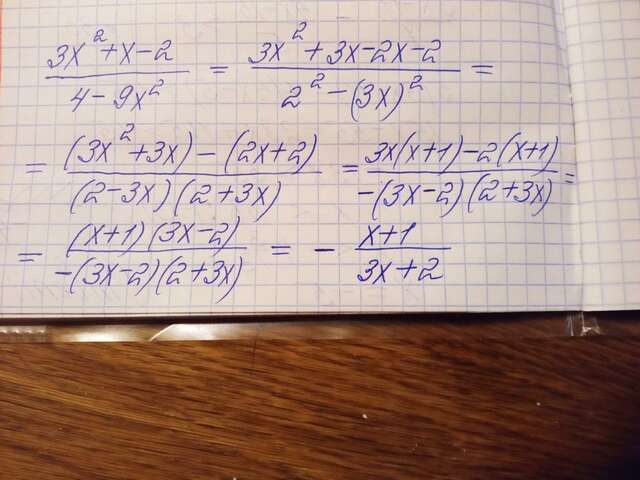 (3x²+x-2)/(4-9x²) = (3x²+3x-2x-2)/(2²-(3x)²) =
= ((3x²+3x)-(2x+2))/((2-3x)(2+3x)) = (3x(x+1)-2(x+1))/(-(3x-2)(2+3x)) =
= ((x+1)(3x-2))/(-(3x-2)(2+3x)) = - (x+1)/(3x+2)